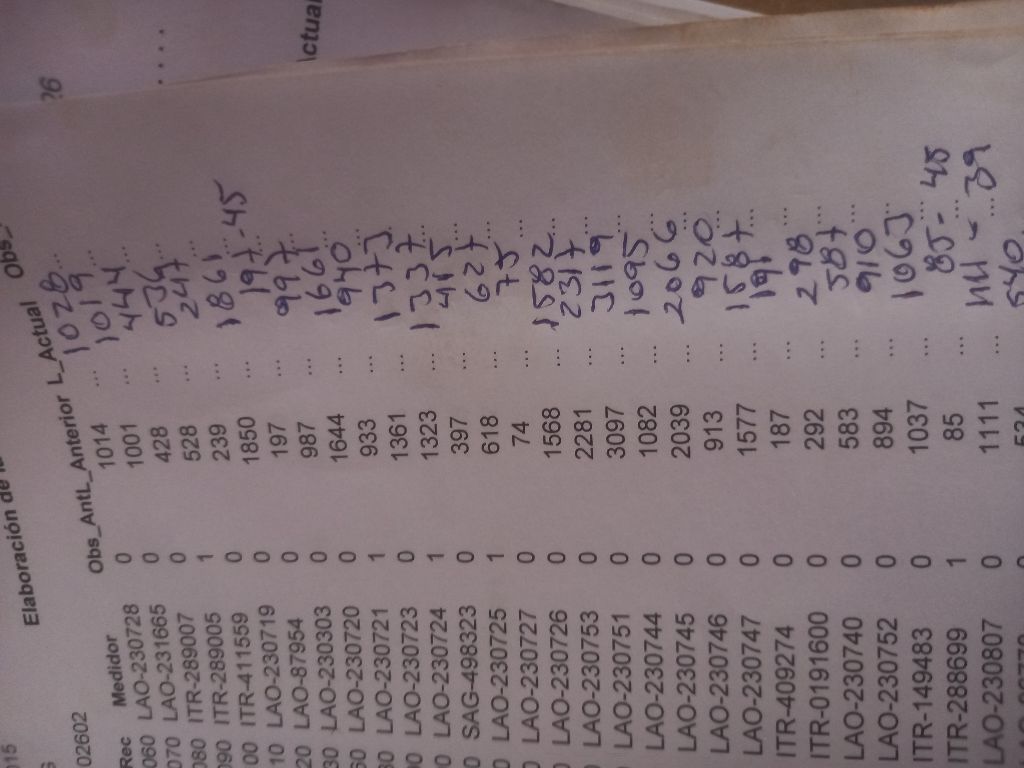 015 Elaboración de
26
ctual
02602
Rec Medidor Obs_Ant L_Anterior L_Actual Obs_
060 LAO-230728 0 1014 ... 1028 ...
070 LAO-231665 0 1001 ... 1019 ...
080 ITR-289007 0 428 ... 444 ...
090 ITR-289005 1 528 ... 536 ...
00 ITR-411559 0 239 ... 247 ...
10 LAO-230719 0 1850 ... 1861 ...
20 LAO-87954 0 197 ... 197 - 45
30 LAO-230303 0 987 ... 997 ...
60 LAO-230720 0 1644 ... 1661 ...
80 LAO-230721 1 933 ... 940 ...
0 LAO-230723 0 1361 ... 1373 ...
0 LAO-230724 1 1323 ... 1337 ...
0 SAG-498323 0 397 ... 415 ...
0 LAO-230725 1 618 ... 627 ...
0 LAO-230727 0 74 ... 75 ...
0 LAO-230726 0 1568 ... 1582 ...
0 LAO-230753 0 2281 ... 2317 ...
0 LAO-230751 0 3097 ... 3119 ...
LAO-230744 0 1082 ... 1095 ...
LAO-230745 0 2039 ... 2066 ...
LAO-230746 0 913 ... 920 ...
LAO-230747 0 1577 ... 1587 ...
ITR-409274 0 187 ... 191 ...
ITR-0191600 0 292 ... 298 ...
LAO-230740 0 583 ... 587 ...
LAO-230752 0 894 ... 910 ...
ITR-149483 0 1037 ... 1063 ...
ITR-288699 1 85 ... 85 - 45
LAO-230807 0 1111 ... 1111 - 39
534 540